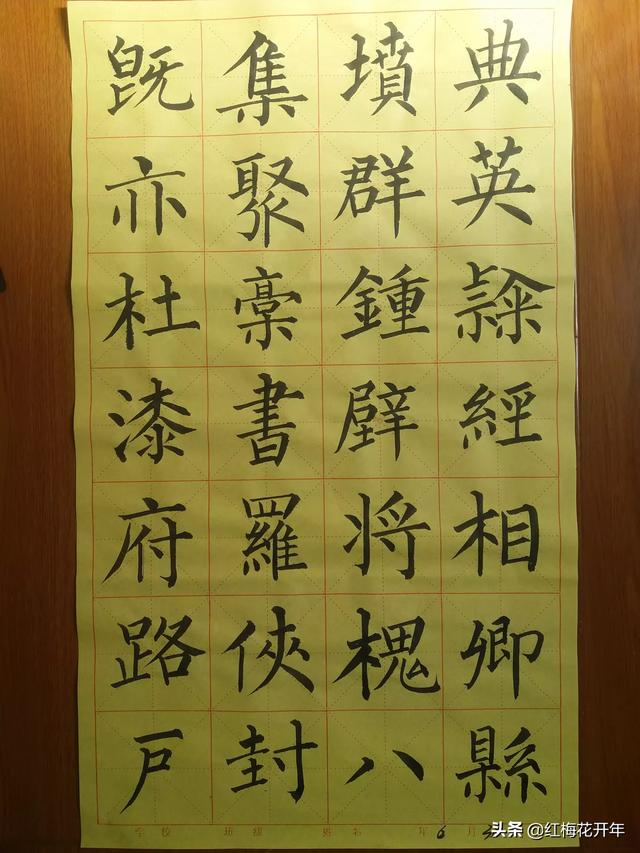 既集墳典
亦聚群英
杜稾鍾隸
漆書壁經
府羅将相
路俠槐卿
戸封八縣
学校 班级 姓名 年 6 月
头条 @红梅花开年